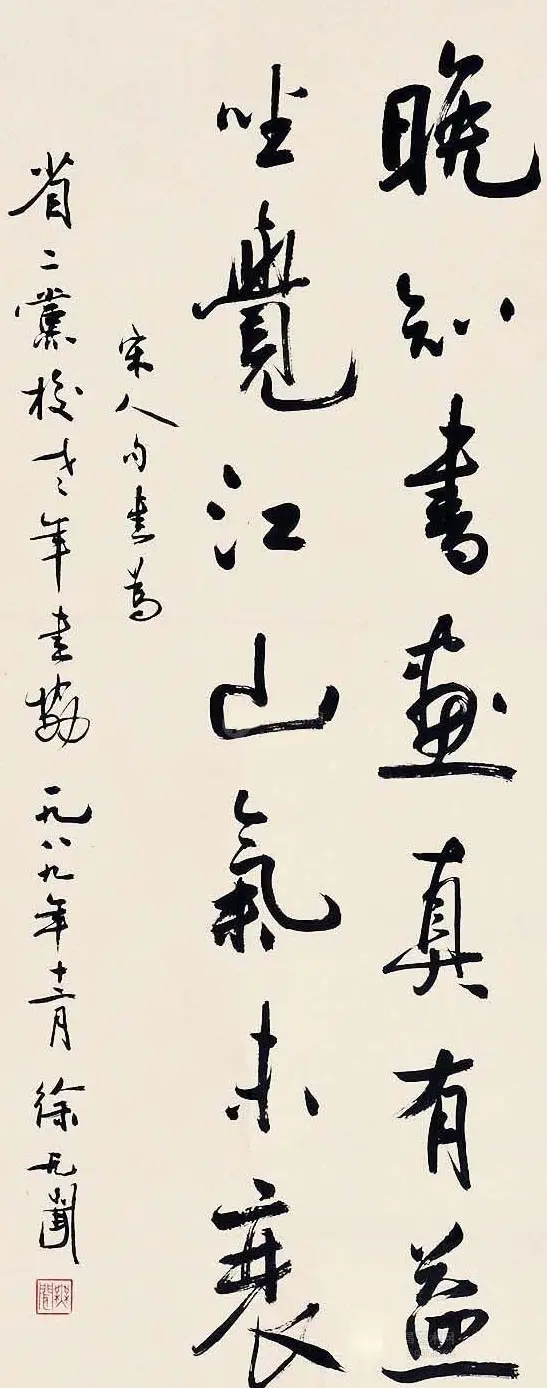 晚知書畫真有益
坐覺江山氣未衰
宋人句書為
省二黨校老年書協 一九八九年十二月 徐无聞